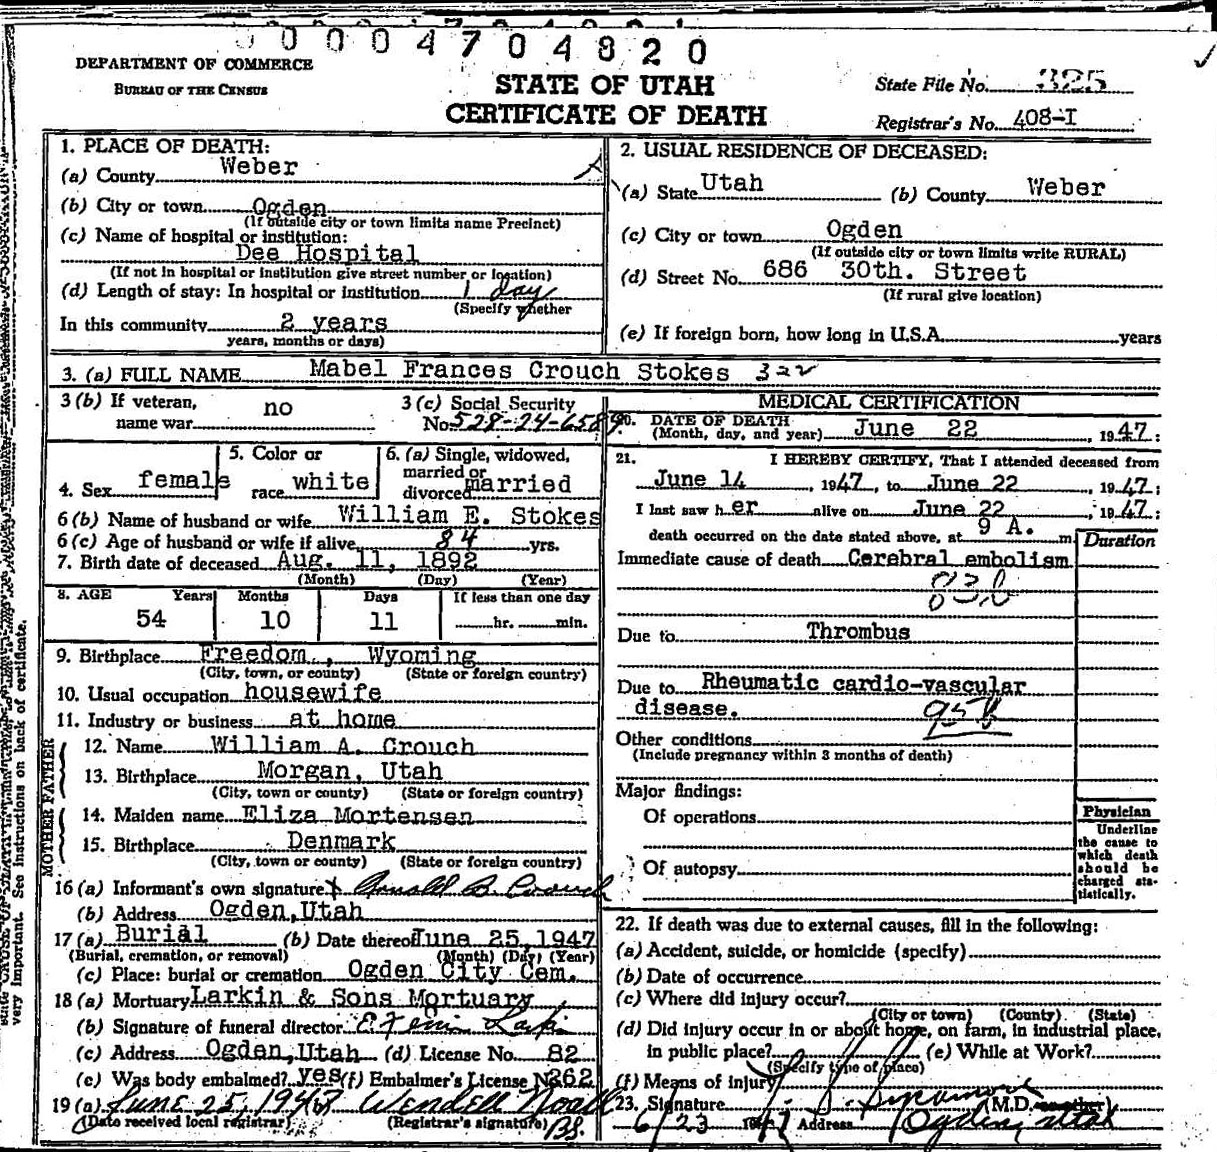 0 0 0 4 7 0 4 8 2 0
DEPARTMENT OF COMMERCE
BUREAU OF THE CENSUS
STATE OF UTAH
CERTIFICATE OF DEATH
State File No. 325
Registrar's No. 408-I
1. PLACE OF DEATH:
(a) County Weber
(b) City or town Ogden
(If outside city or town limits name Precinct)
(c) Name of hospital or institution:
Dee Hospital
(If not in hospital or institution give street number or location)
(d) Length of stay: In hospital or institution 1 day
(Specify whether
In this community 2 years
years, months or days)
2. USUAL RESIDENCE OF DECEASED:
(a) State Utah (b) County Weber
(c) City or town Ogden
(If outside city or town limits write RURAL)
(d) Street No. 686 30th. Street
(If rural give location)
(e) If foreign born, how long in U.S.A. years
3. (a) FULL NAME Mabel Frances Crouch Stokes 322
3 (b) If veteran, name war no
3 (c) Social Security
No. 528-24-6589
4. Sex female
5. Color or race white
6. (a) Single, widowed, married or divorced married
6 (b) Name of husband or wife William E. Stokes
6 (c) Age of husband or wife if alive 84 yrs.
7. Birth date of deceased Aug. 11, 1892
(Month) (Day) (Year)
8. AGE Years Months Days If less than one day
54 10 11 hr. min.
9. Birthplace Freedom, Wyoming
(City, town, or county) (State or foreign country)
10. Usual occupation housewife
11. Industry or business at home
FATHER
12. Name William A. Crouch
13. Birthplace Morgan, Utah
(City, town or county) (State or foreign country)
MOTHER
14. Maiden name Eliza Mortensen
15. Birthplace Denmark
(City, town or county) (State or foreign country)
16 (a) Informant's own signature x Arnold B. Crouch
(b) Address Ogden, Utah
17 (a) Burial (b) Date thereof June 25, 1947
(Burial, cremation, or removal) (Month) (Day) (Year)
(c) Place: burial or cremation Ogden City Cem.
18 (a) Mortuary Larkin & Sons Mortuary
(b) Signature of funeral director Larkin
(c) Address Ogden, Utah (d) License No. 82
(e) Was body embalmed? yes (f) Embalmer's License N 262
19 (a) June 25, 1947 Wendell Noall
(Date received local registrar) (Registrar's signature) BS.
MEDICAL CERTIFICATION
20. DATE OF DEATH
(Month, day, and year) June 22, 1947:
21. I HEREBY CERTIFY, That I attended deceased from
June 14, 1947, to June 22, 1947;
I last saw her alive on June 22, 1947;
death occurred on the date stated above, at 9 A. m.
Duration
Immediate cause of death Cerebral embolism
Due to Thrombus
Due to Rheumatic cardio-vascular
disease.
Other conditions
(Include pregnancy within 3 months of death)
Major findings:
Of operations
Of autopsy
Physician
Underline
the cause to
which death
should be
charged sta-
tistically.
22. If death was due to external causes, fill in the following:
(a) Accident, suicide, or homicide (specify)
(b) Date of occurrence
(c) Where did injury occur?
(City or town) (County) (State)
(d) Did injury occur in or about home, on farm, in industrial place,
in public place? (e) While at Work?
(Specify type of place)
(f) Means of injury
23. Signature (M.D.
6/23 1947 Address Ogden, Utah
very important. See instructions on back of certificate.